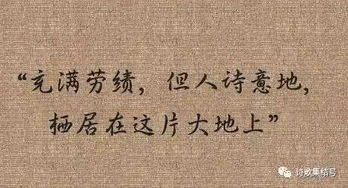 “充满劳绩，但人诗意地，
栖居在这片大地上”
诗歌集结号